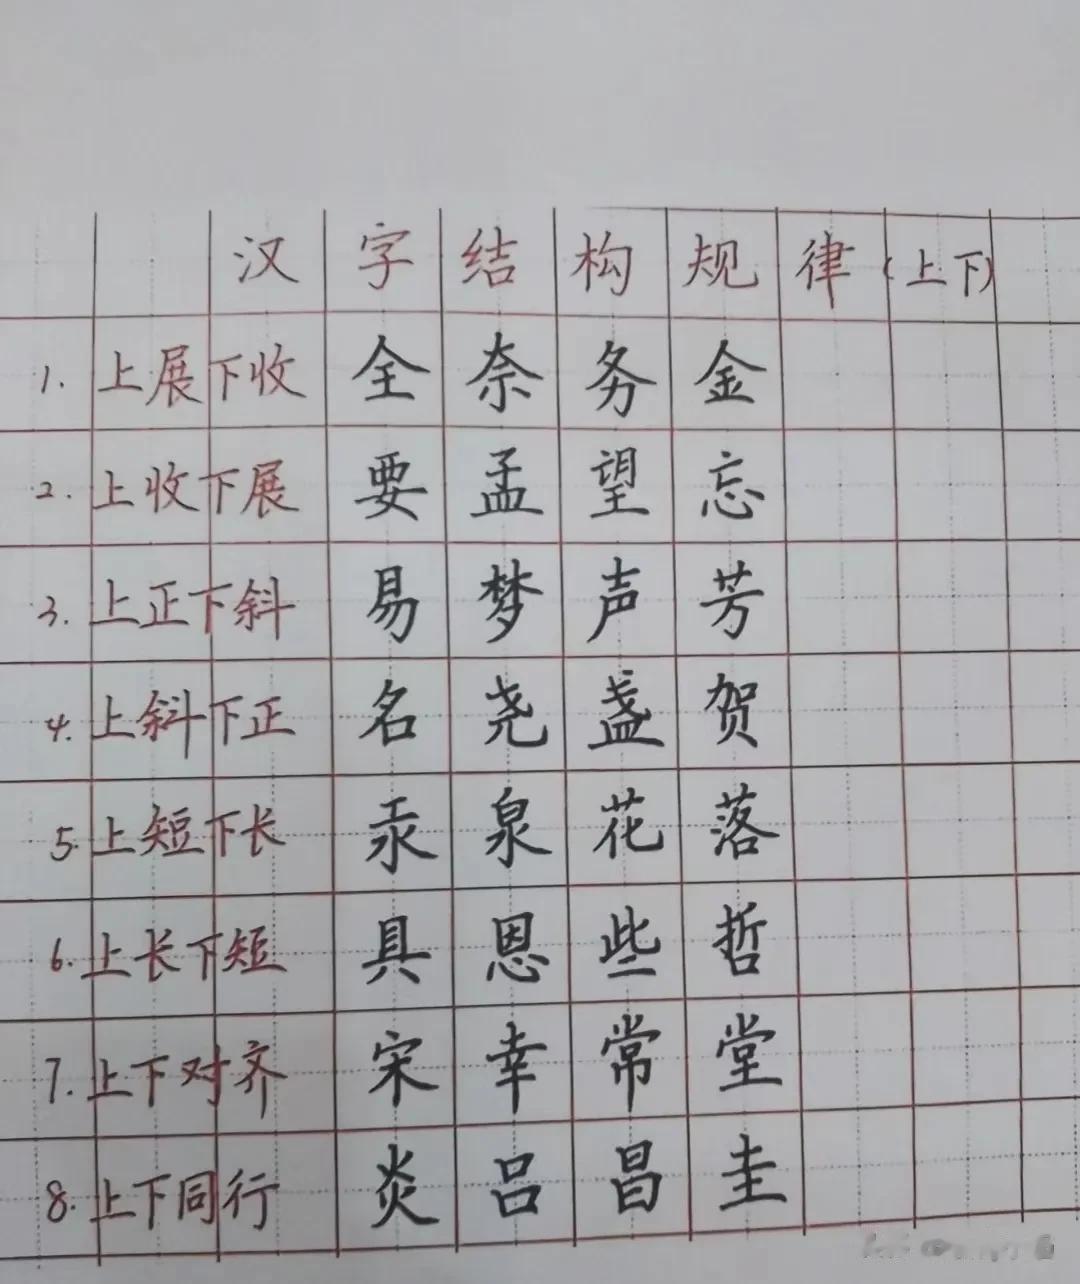 汉字结构规律(上下)
1. 上展下收 全 奈 务 金
2. 上收下展 要 孟 望 忘
3. 上正下斜 易 梦 声 芳
4. 上斜下正 名 尧 盏 贺
5. 上短下长 汞 泉 花 落
6. 上长下短 具 恩 些 哲
7. 上下对齐 宋 幸 常 堂
8. 上下同行 炎 吕 昌 圭